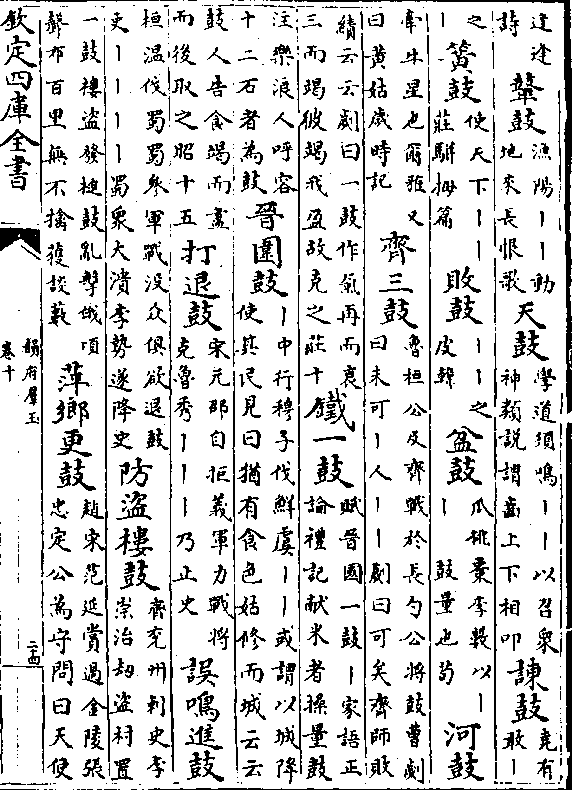 逢逢詩 鼙鼓 漁陽丨丨動地來長恨歌 天鼓 學道須鳴丨丨以召衆神類説謂齒上下相叩 諫鼓 堯有敢丨
之丨 簧鼓 使天下丨丨莊駢拇篇 敗鼓 丨丨之皮韓 盆鼓 瓜桃棗李穀以丨丨鼓量也荀 河鼓
牽牛星也爾雅又曰黃姑歲時記 齊三鼓 魯桓公及齊戰於長勺公將鼓曹劌曰未可丨人丨丨劌曰可矣齊師敗
績云云劌曰一鼓作氣再而衰三而竭彼竭我盈故克之莊十 鐵一鼓 賦晉國一鼓丨家語正論禮記献米者操量鼓
注樂浪人呼容十二石者為鼓 晉圍鼓 丨中行穆子伐鮮虞丨丨或謂以城降使其民見曰猶有食色姑修而城云云
鼓人告食竭而盡而後取之昭十五 打退鼓 宋元邵自拒義軍力戰將克魯秀丨丨丨乃止史 誤鳴進鼓
桓溫伐蜀蜀叅軍戰没众俱欲退鼓吏丨丨丨丨蜀衆大潰李勢遂降史 防盜樓鼓 齊兖州刺史李崇治劫盜村置
一鼓樓盜發搥鼓亂擊俄頃聲布百里無不擒獲談藪 萍鄉更鼓 趙宋范延賞過金陵張忠定公為守問曰天使
欽定四庫全書
韻府羣玉
卷十
二十四